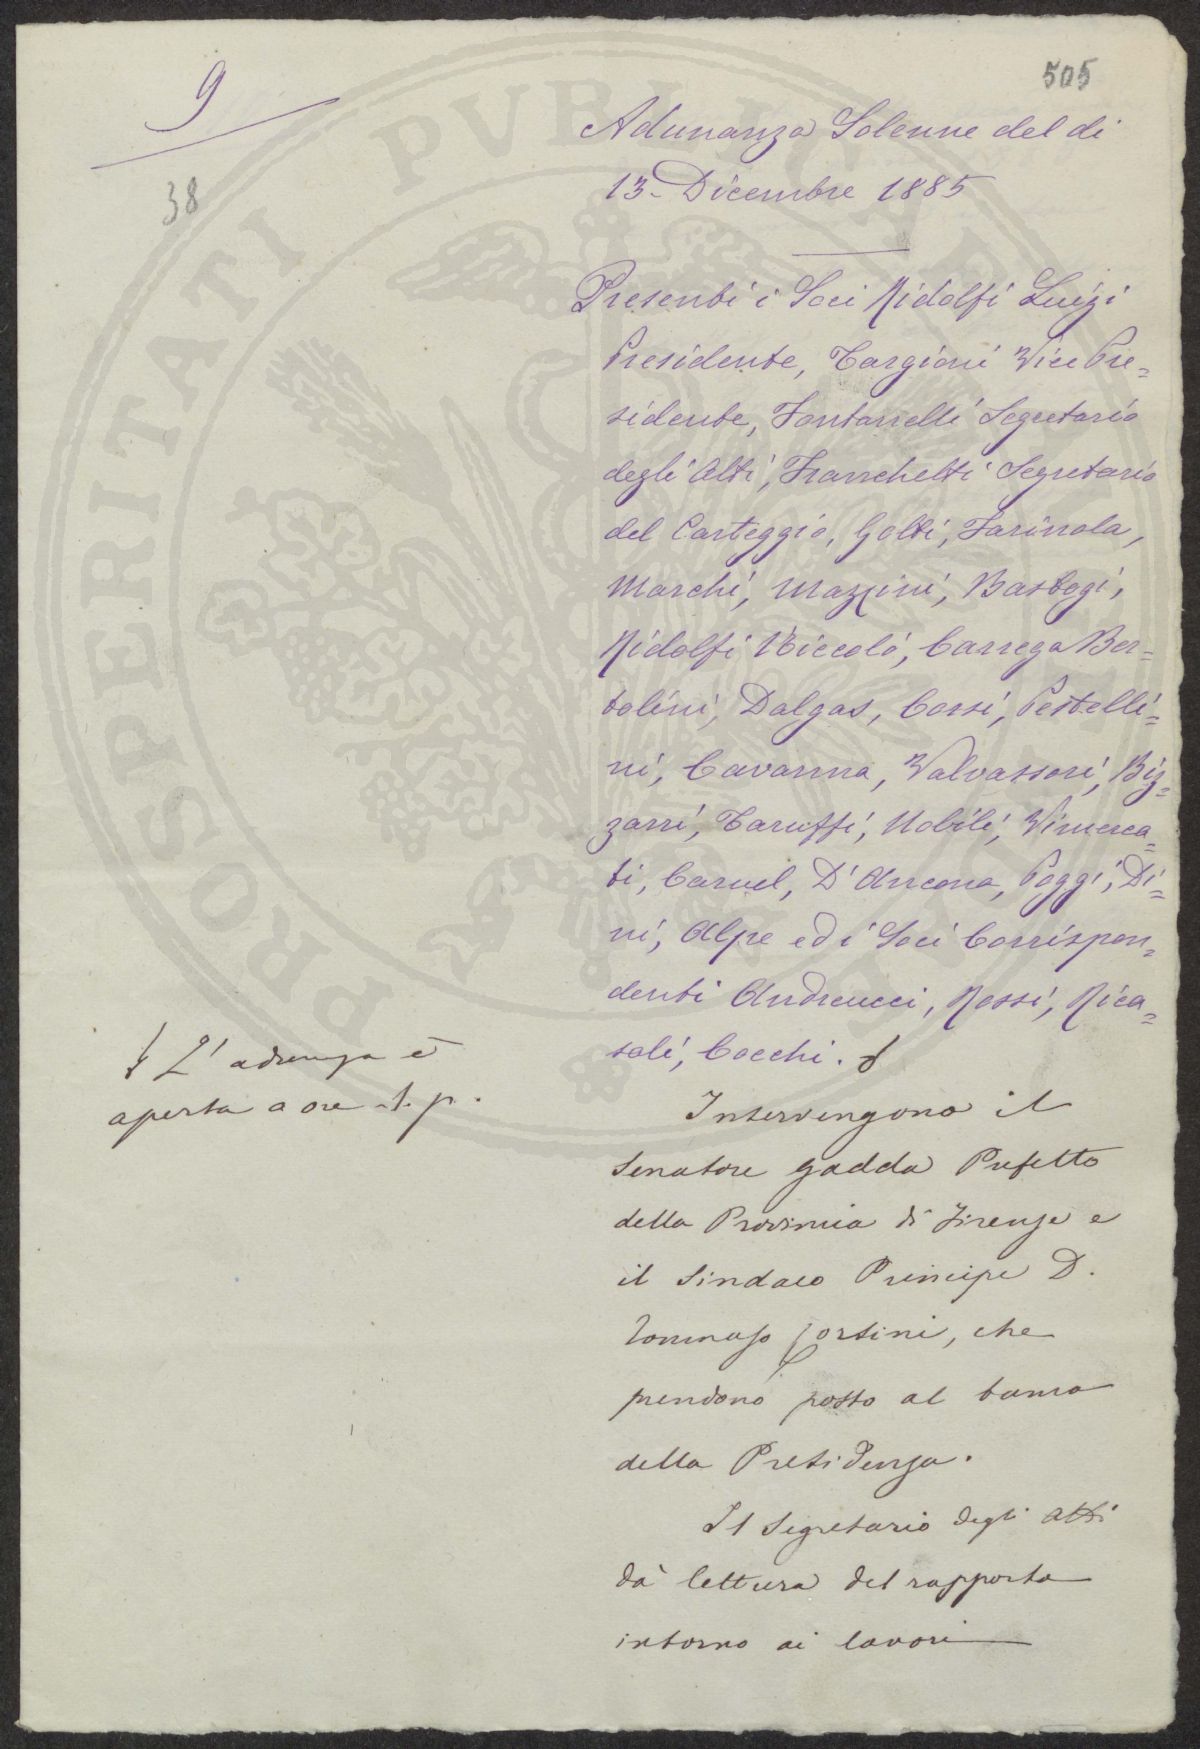 9
505
38
Adunanza Solenne del di
13. Dicembre 1885
Presenti i Soci Ridolfi Luigi
Presidente, Targioni Vice Pre=
sidente, Fontanelli Segretario
degli Atti, Franchetti Segretario
del Carteggio, Gotti, Farinola,
Marchi, Mazzini, Bastogi,
Ridolfi Niccolò, Carrega Ber=
tolini, Dalgas, Corsi, Pestelli=
ni, Cavanna, Valvassori, Biz=
zarri, Taruffi, Nobili, Vimerca=
ti, Caruel, D'Ancona, Poggi, Di=
ni, Alpe ed i Soci Corrispon=
denti Andreucci, Rossi, Rica=
soli, Cocchi.
L'adunanza è
aperta a ore 1. p.
Intervengono il
Senatore Gadda Prefetto
della Provincia di Firenze e
il Sindaco Principe D.
Tommaso Corsini, che
prendono posto al banco
della Presidenza.
Il Segretario degli Atti
dà lettura del rapporto
intorno ai lavori
PROSPERITATI PUBLICAE